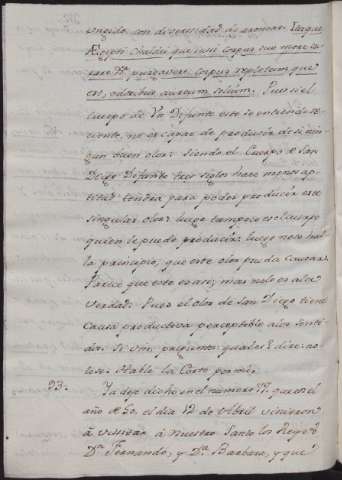 ungido con diversidad de aromas.
Ægypti
corpus repletum que
est, odoribus aureum solium. Pues si el
cuerpo de Un Difunto este se entiende re
ciente, no es capaz de producir de si nin
gun buen olor: siendo el Cuerpo de San
Diego Difunto tres siglos hace menos ap
titud tendra para poder producir ese
singular olor: luego tampoco es el cuerpo
quien le puede producir: luego no se hal
la principio, que este olor pueda causar.
Parece que esto es asi; mas no lo es a la
verdad: Pues el olor de San Diego tiene
Causa productiva perceptible a los senti
dos. Si Vm. pregunta: qual es? dire: no
lo se. Hable la Corte por mi.
93. Ya dejo dicho en el numero 77. que en el
año de 50. el dia 12 de Abril vinieron
a visitar a Nuestro Santo los Reyes
Dn. Fernando, y Da. Barbara, y que